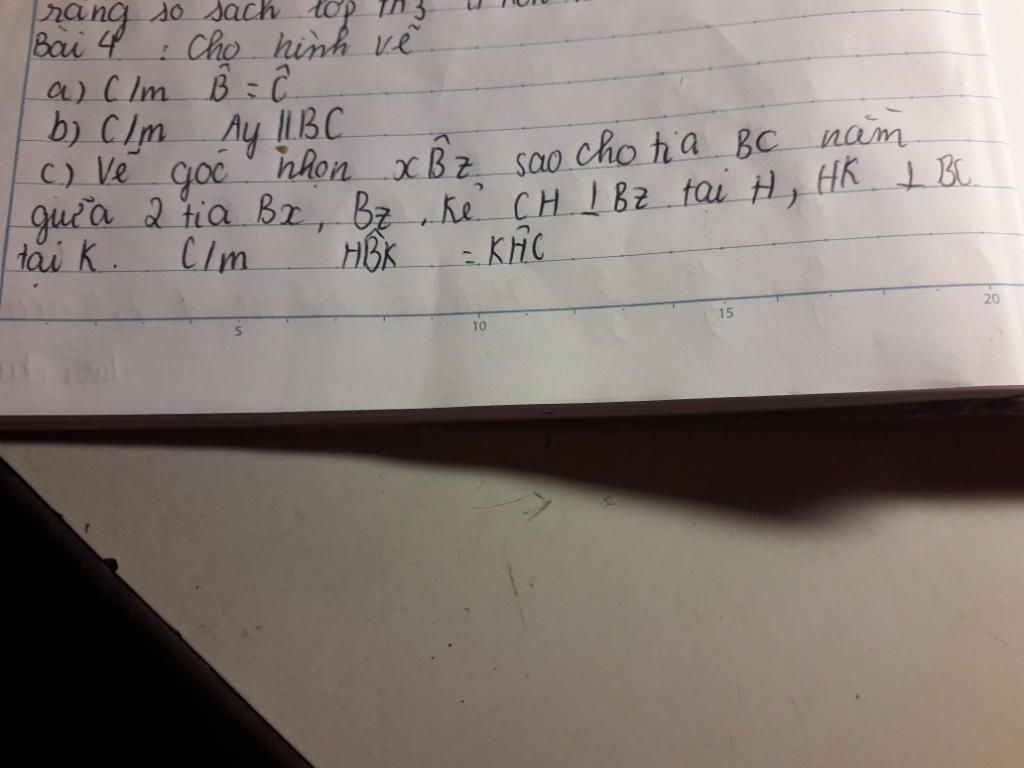 răng số sách lớp
Bài 4 : Cho hình vẽ
a) C/m B̂ = Ĉ
b) C/m Ay // BC
c) Vẽ góc nhọn xB̂z sao cho tia BC nằm
giữa 2 tia Bx, Bz . Kẻ CH ⊥ Bz tại H, HK ⊥ BC
tại K. C/m HB̂K = KĤC
5 10 15 20